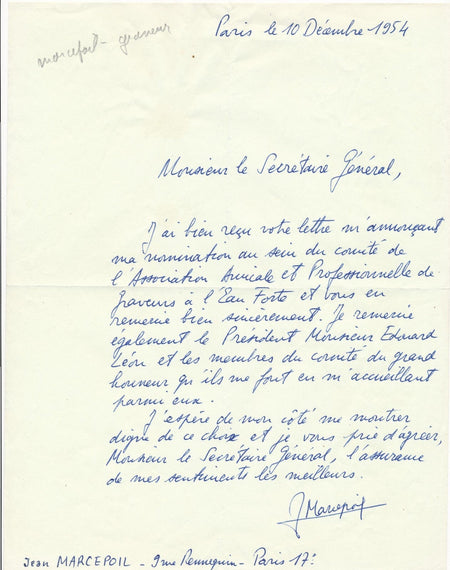 Paris le 10 Décembre 1954
marcepoil - graveur
Monsieur le Secrétaire Général,
J'ai bien reçu votre lettre m'annonçant
ma nomination au sein du comité de
l'Association Amicale et Professionnelle de
Graveurs à l'Eau Forte et vous en
remercie bien sincèrement. Je remercie
également le Président Monsieur Edouard
Léon et les membres du comité du grand
honneur qu'ils me font en m'accueillant
parmi eux.
J'espère de mon côté me montrer
digne de ce choix et je vous prie d'agréer,
Monsieur le Secrétaire Général, l'assurance
de mes sentiments les meilleurs.
JMarcepoil
Jean MARCEPOIL - 9 rue Rennequin - Paris 17e